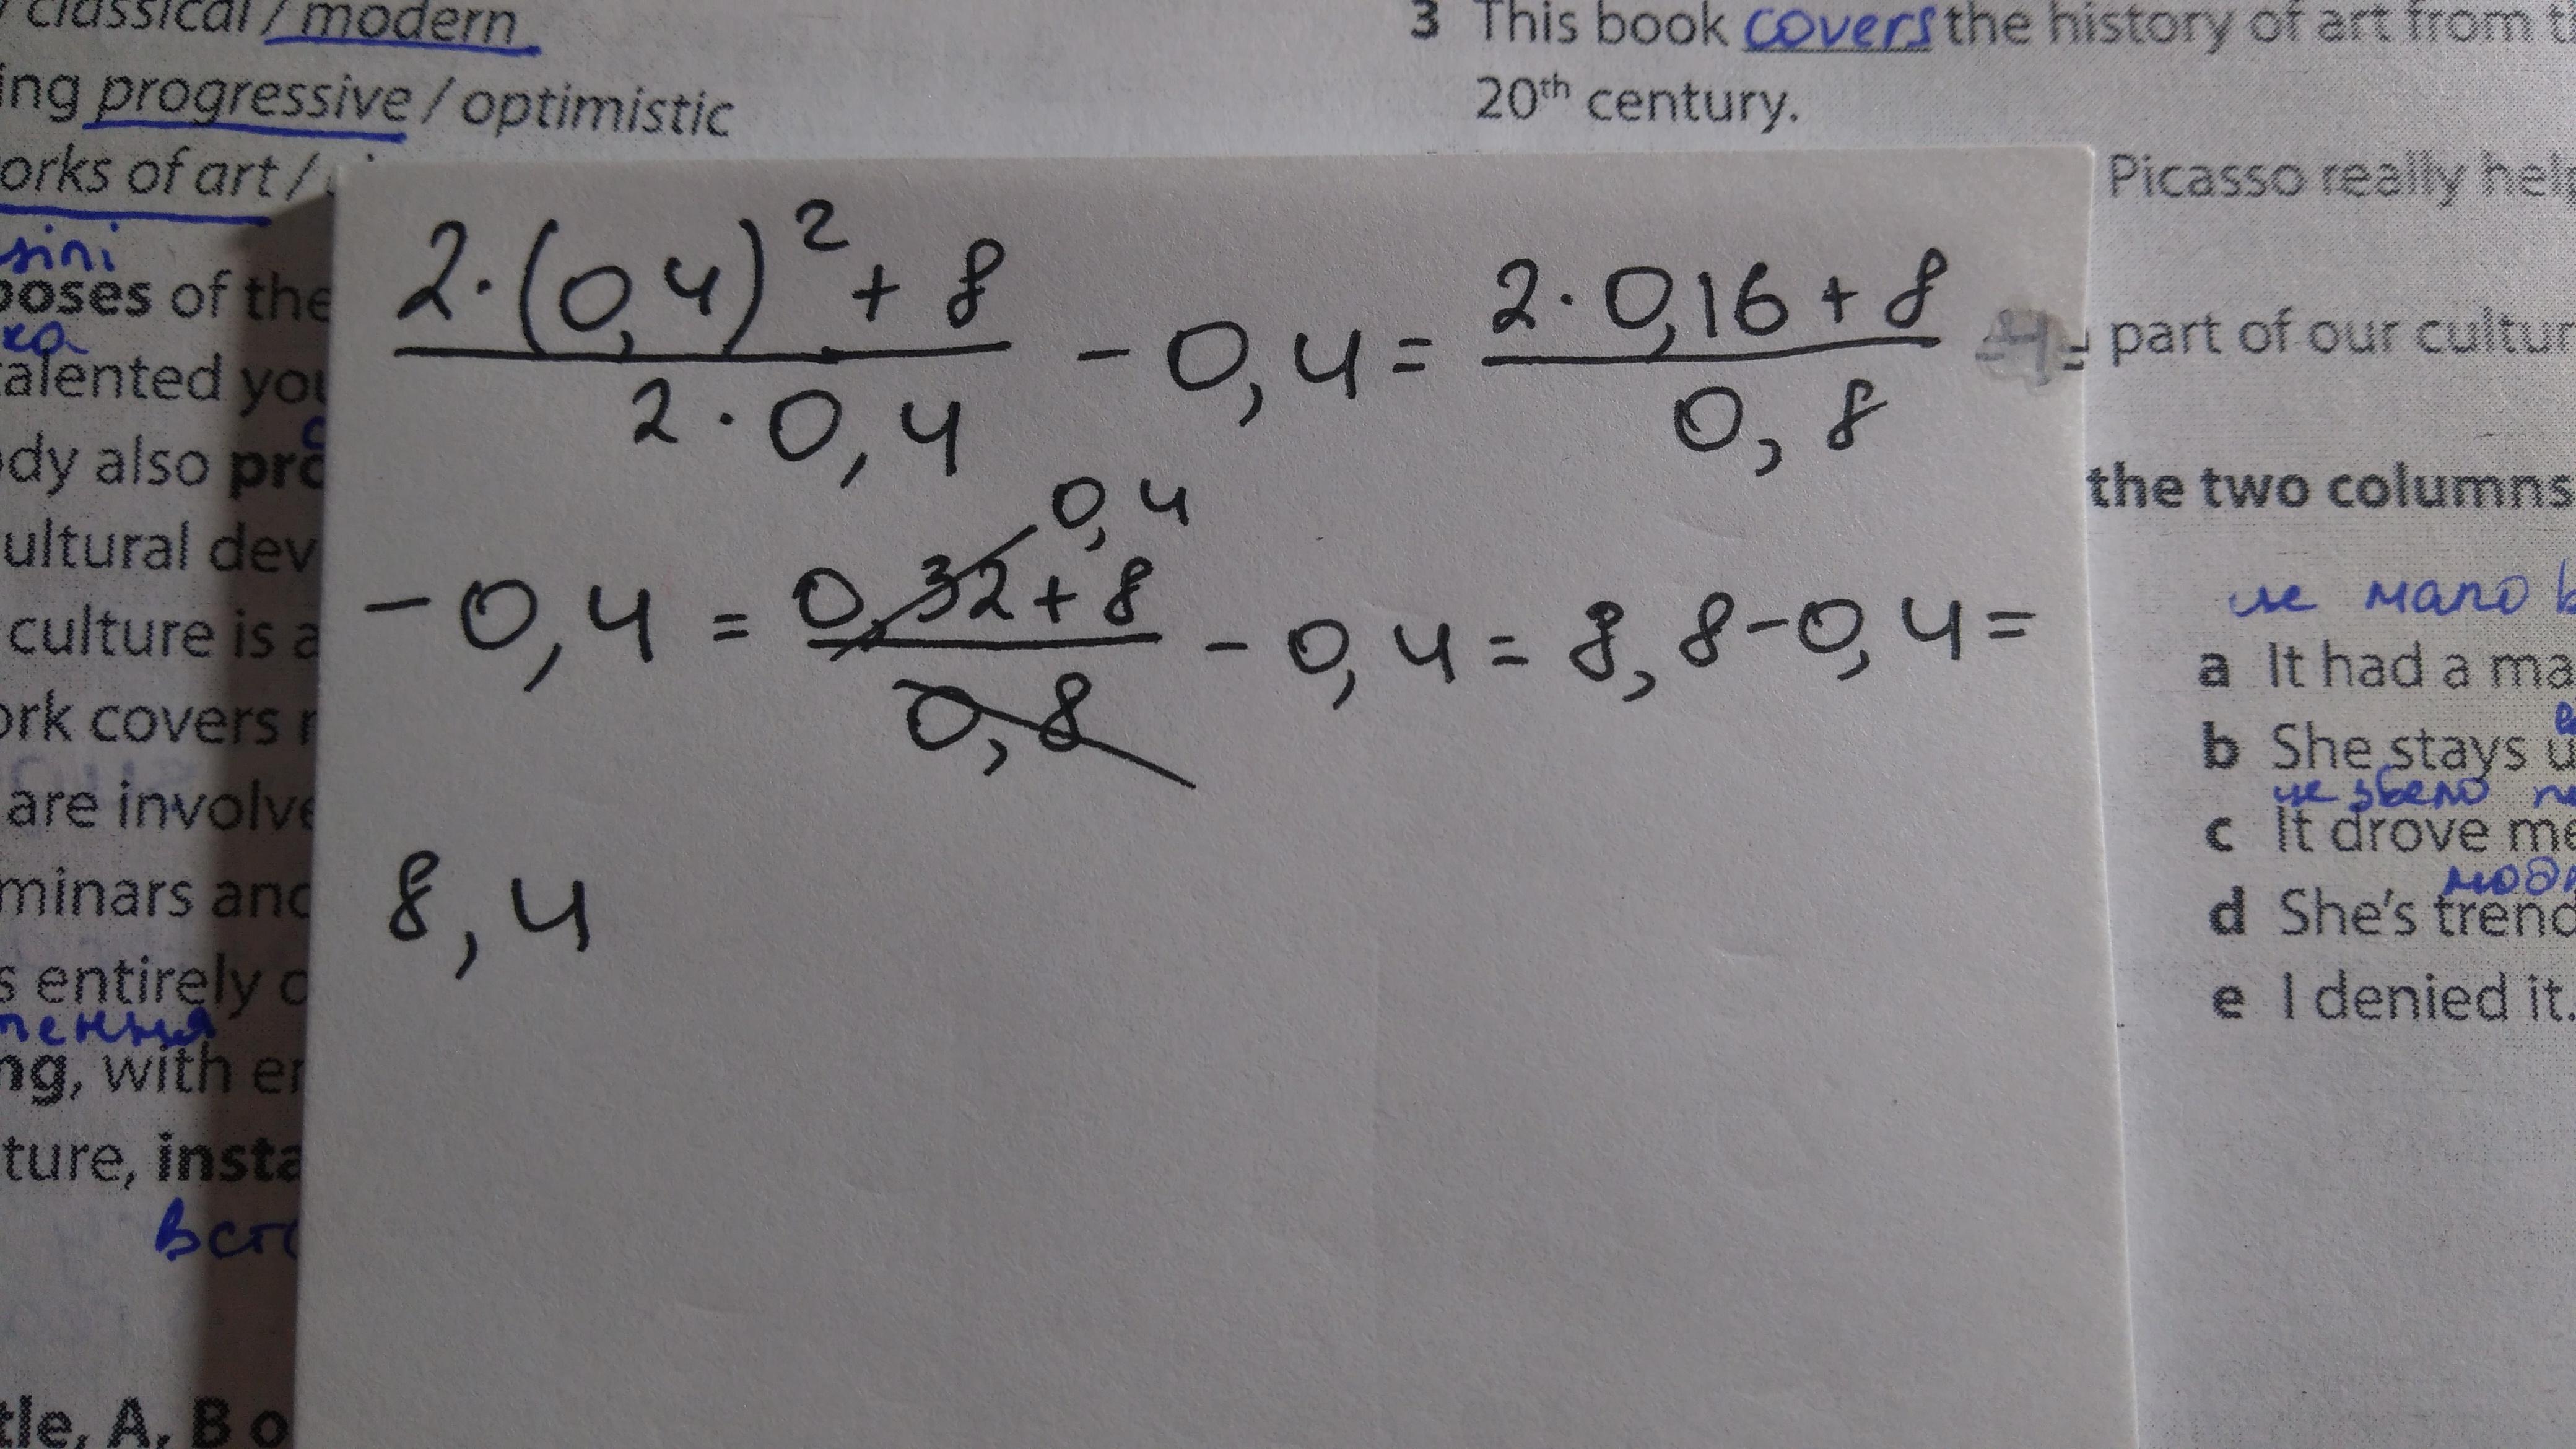 classical / modern
ing progressive / optimistic
orks of art /
sini
poses of the
ка
alented you
dy also pro
ultural dev
culture is a
ork covers
are involve
minars and
s entirely
лення
ng, with er
ture, insta
вст
tle, A, B o
2·(0,4)² + 8 / 2·0,4 - 0,4 = 2·0,16 + 8 / 0,8 =
- 0,4 = 0,32 + 8 / 0,8 0,4 - 0,4 = 8,8 - 0,4 =
8,4
3 This book covers the history of art from t
20th century.
Picasso really help
part of our cultur
the two columns
не мало
a It had a ma
b She stays u
не звело
c It drove me
мод
d She's trend
e I denied it.